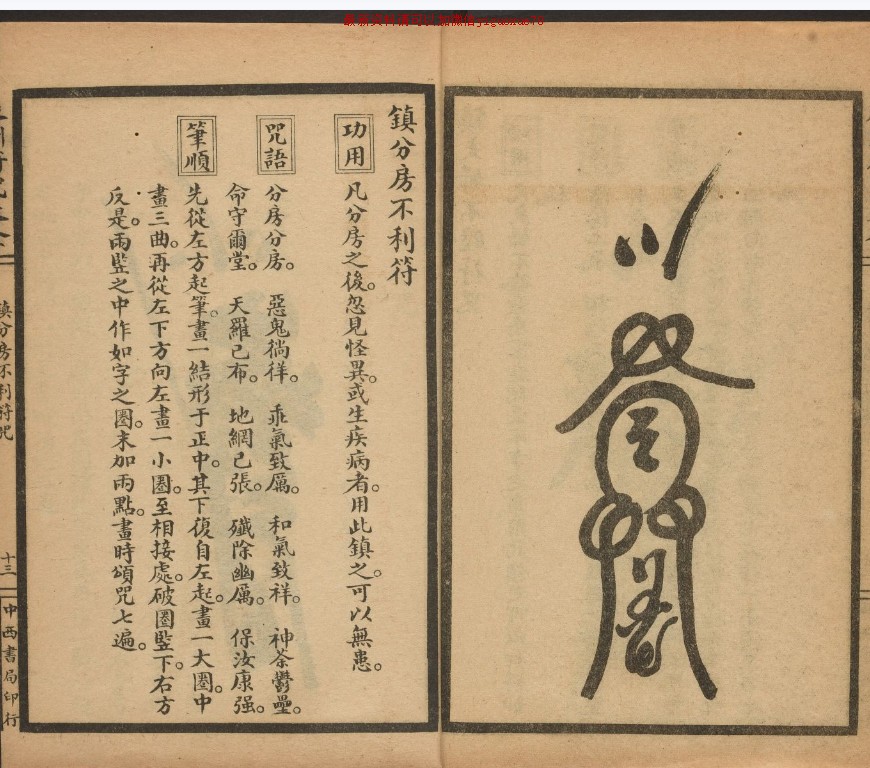 鎮分房不利符
功用
凡分房之後。忽見怪異。或生疾病者。用此鎮之。可以無患。
咒語
分房分房。 惡鬼徜徉。 乖氣致厲。 和氣致祥。 神荼鬱壘。
命守爾堂。 天羅已布。 地網已張。 殲除幽厲。 保汝康强。
筆順
先從左方起筆。畫一結形于正中。其下復自左起。畫一大圈。中
畫三曲。再從左下方向左畫一小圈。至相接處。破圈豎下。右方
反是。兩豎之中作如字之圈。末加兩點。畫時頌咒七遍。
鎮分房不利符咒
十三
中西書局印行